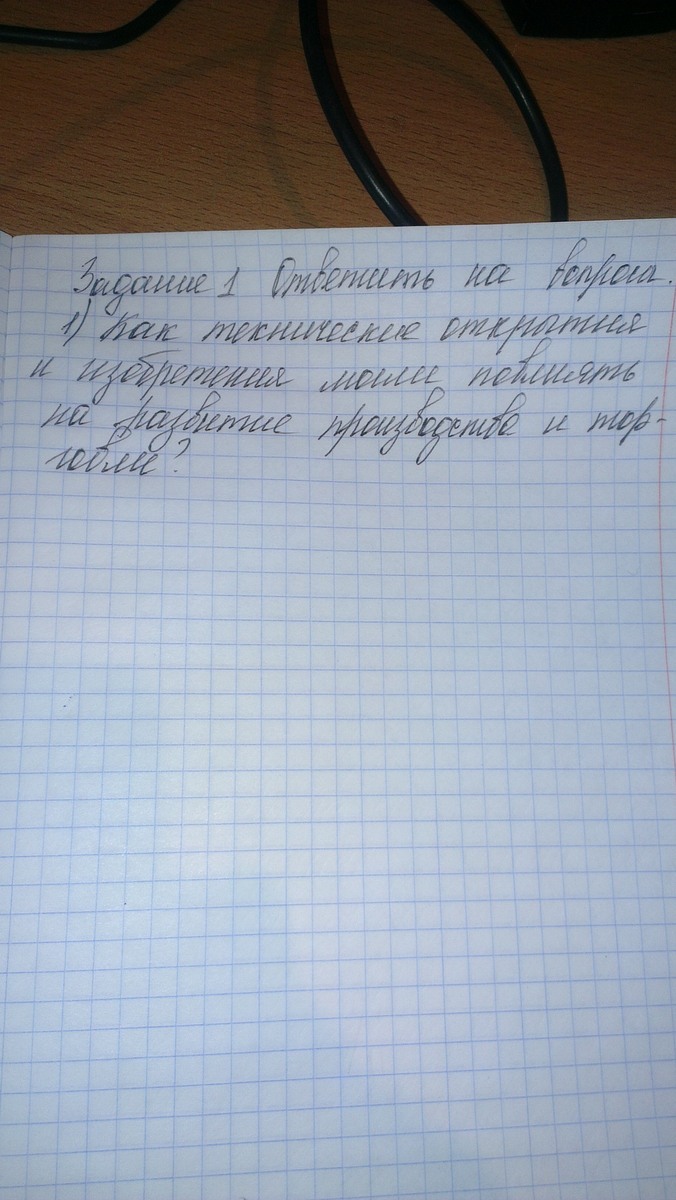 Задание 1 Ответить на вопросы.
1) Как технические открытия
и изобретения могли повлиять
на развитие производства и тор-
говли?